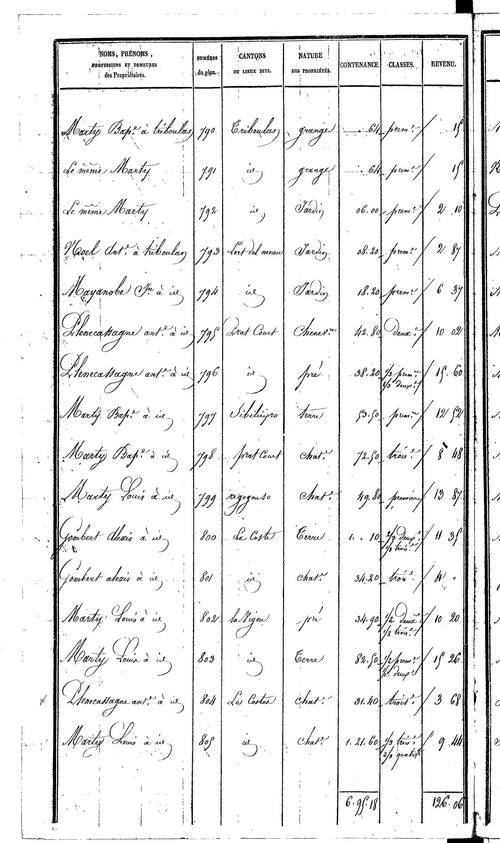 NOMS, PRÉNOMS, PROFESSIONS ET DEMEURES des Propriétaires. NUMÉROS du plan. CANTONS OU LIEUX DITS. NATURE DES PROPRIÉTÉS. CONTENANCE. CLASSES. REVENU.
Marty Bap.te à triboulan 790 Triboulan grange 64 prem.re 15
Le même Marty 791 id grange 64 prem.re 15
Le même Marty 792 id Jardin 06.00 prem.re 2 10
Noel Ant.e à triboulan 793 Lort del 08.20 prem.re 2 87
Mayanobe à id 794 id Jardin 18.20 prem.re 6 37
Plenecassagne ant.e à id 795 Prat Court Chenev.re 42.80 deux.e 10 02
Plenecassagne ant.e à id 796 id pré 38.20 1/2 prem.re 1/2 deux.e 15 60
Marty Bap.te à id 797 terre 53.50 prem.re 12 52
Marty Bap.te à id 798 prat Court chat. 72.50 trois.e 8 48
Marty Louis à id 799 chat. 49.80 premiere 13 87
Gombert alexis à id 800 La Coste Terre 1. . 10 1/2 deux.e 1/2 trois.e 11 35
Gombert alexis à id 801 id chat. 34.20 trois.e 4 "
Marty Louis à id 802 la Vigne pré 34.90 1/2 deux.e 1/2 trois.e 10 20
Marty Louis à id 803 id Terre 82.50 1/2 prem.re 1/2 deux.e 15 26
Plenecassagne ant.e à id 804 Las Costes chat. 31.40 trois.e 3 68
Marty Louis à id 805 id chat. 1.21.60 1/2 trois.e 1/2 quatr.e 9 44
6.95.18 126.06